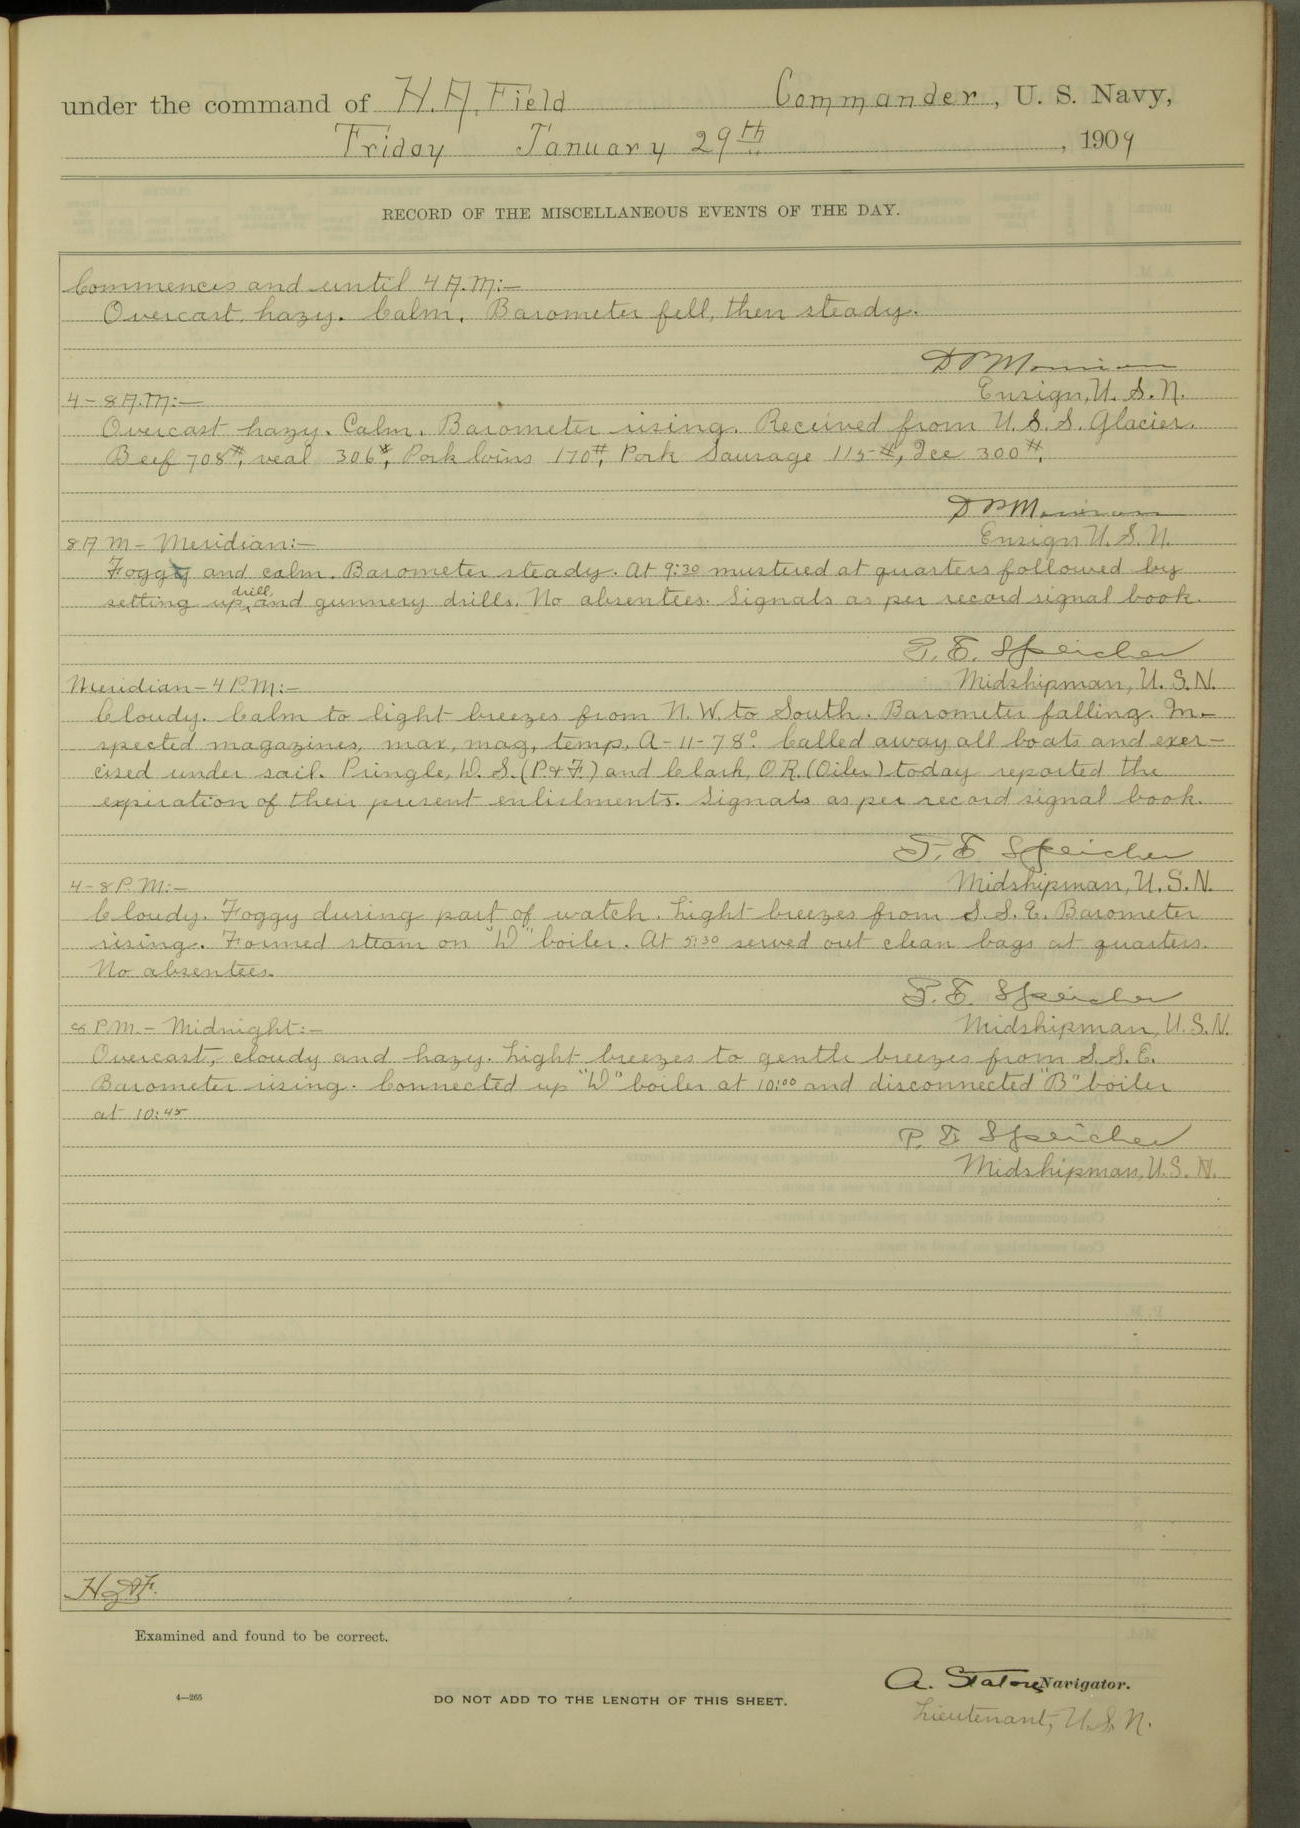 under the command of H. A. Field Commander, U. S. Navy,
Friday January 29th, 1909
RECORD OF THE MISCELLANEOUS EVENTS OF THE DAY.
Commences and until 4 A.M:—
Overcast, hazy. Calm. Barometer fell, then steady.
Ensign, U. S. N.
4-8 A.M:—
Overcast hazy. Calm. Barometer rising. Received from U. S. S. Glacier.
Beef 708#, veal 306#, Pork loins 170#, Pork Sausage 115#, Ice 300#.
Ensign U. S. N.
8 A M - Meridian:—
Foggy and calm. Barometer steady. At 9:30 mustered at quarters followed by
setting up drill, and gunnery drills. No absentees. Signals as per record signal book.
P. E. Speicher
Midshipman, U. S. N.
Meridian - 4 P.M:—
Cloudy. Calm to light breezes from N. W to South. Barometer falling. In-
spected magazines, max, mag, temp. A-11-78°. Called away all boats and exer-
cised under sail. Pringle, W. S. (P.& F.) and Clark, O.R. (Oiler) today reported the
expiration of their present enlistments. Signals as per record signal book.
P. E. Speicher
Midshipman, U. S. N.
4-8 P. M:—
Cloudy. Foggy during part of watch. Light breezes from S. S. E. Barometer
rising. Formed steam on "W" boiler. At 5:30 served out clean bags at quarters.
No absentees.
P. E. Speicher
Midshipman, U. S. N.
8 P.M. - Midnight:—
Overcast, cloudy and hazy. Light breezes to gentle breezes from S. S. E.
Barometer rising. Connected up "W" boiler at 10:00 and disconnected "B" boiler
at 10:45
P. E. Speicher
Midshipman, U. S. N.
H.A.F.
Examined and found to be correct.
A. Staton Navigator.
4—265
DO NOT ADD TO THE LENGTH OF THIS SHEET.
Lieutenant, U. S. N.